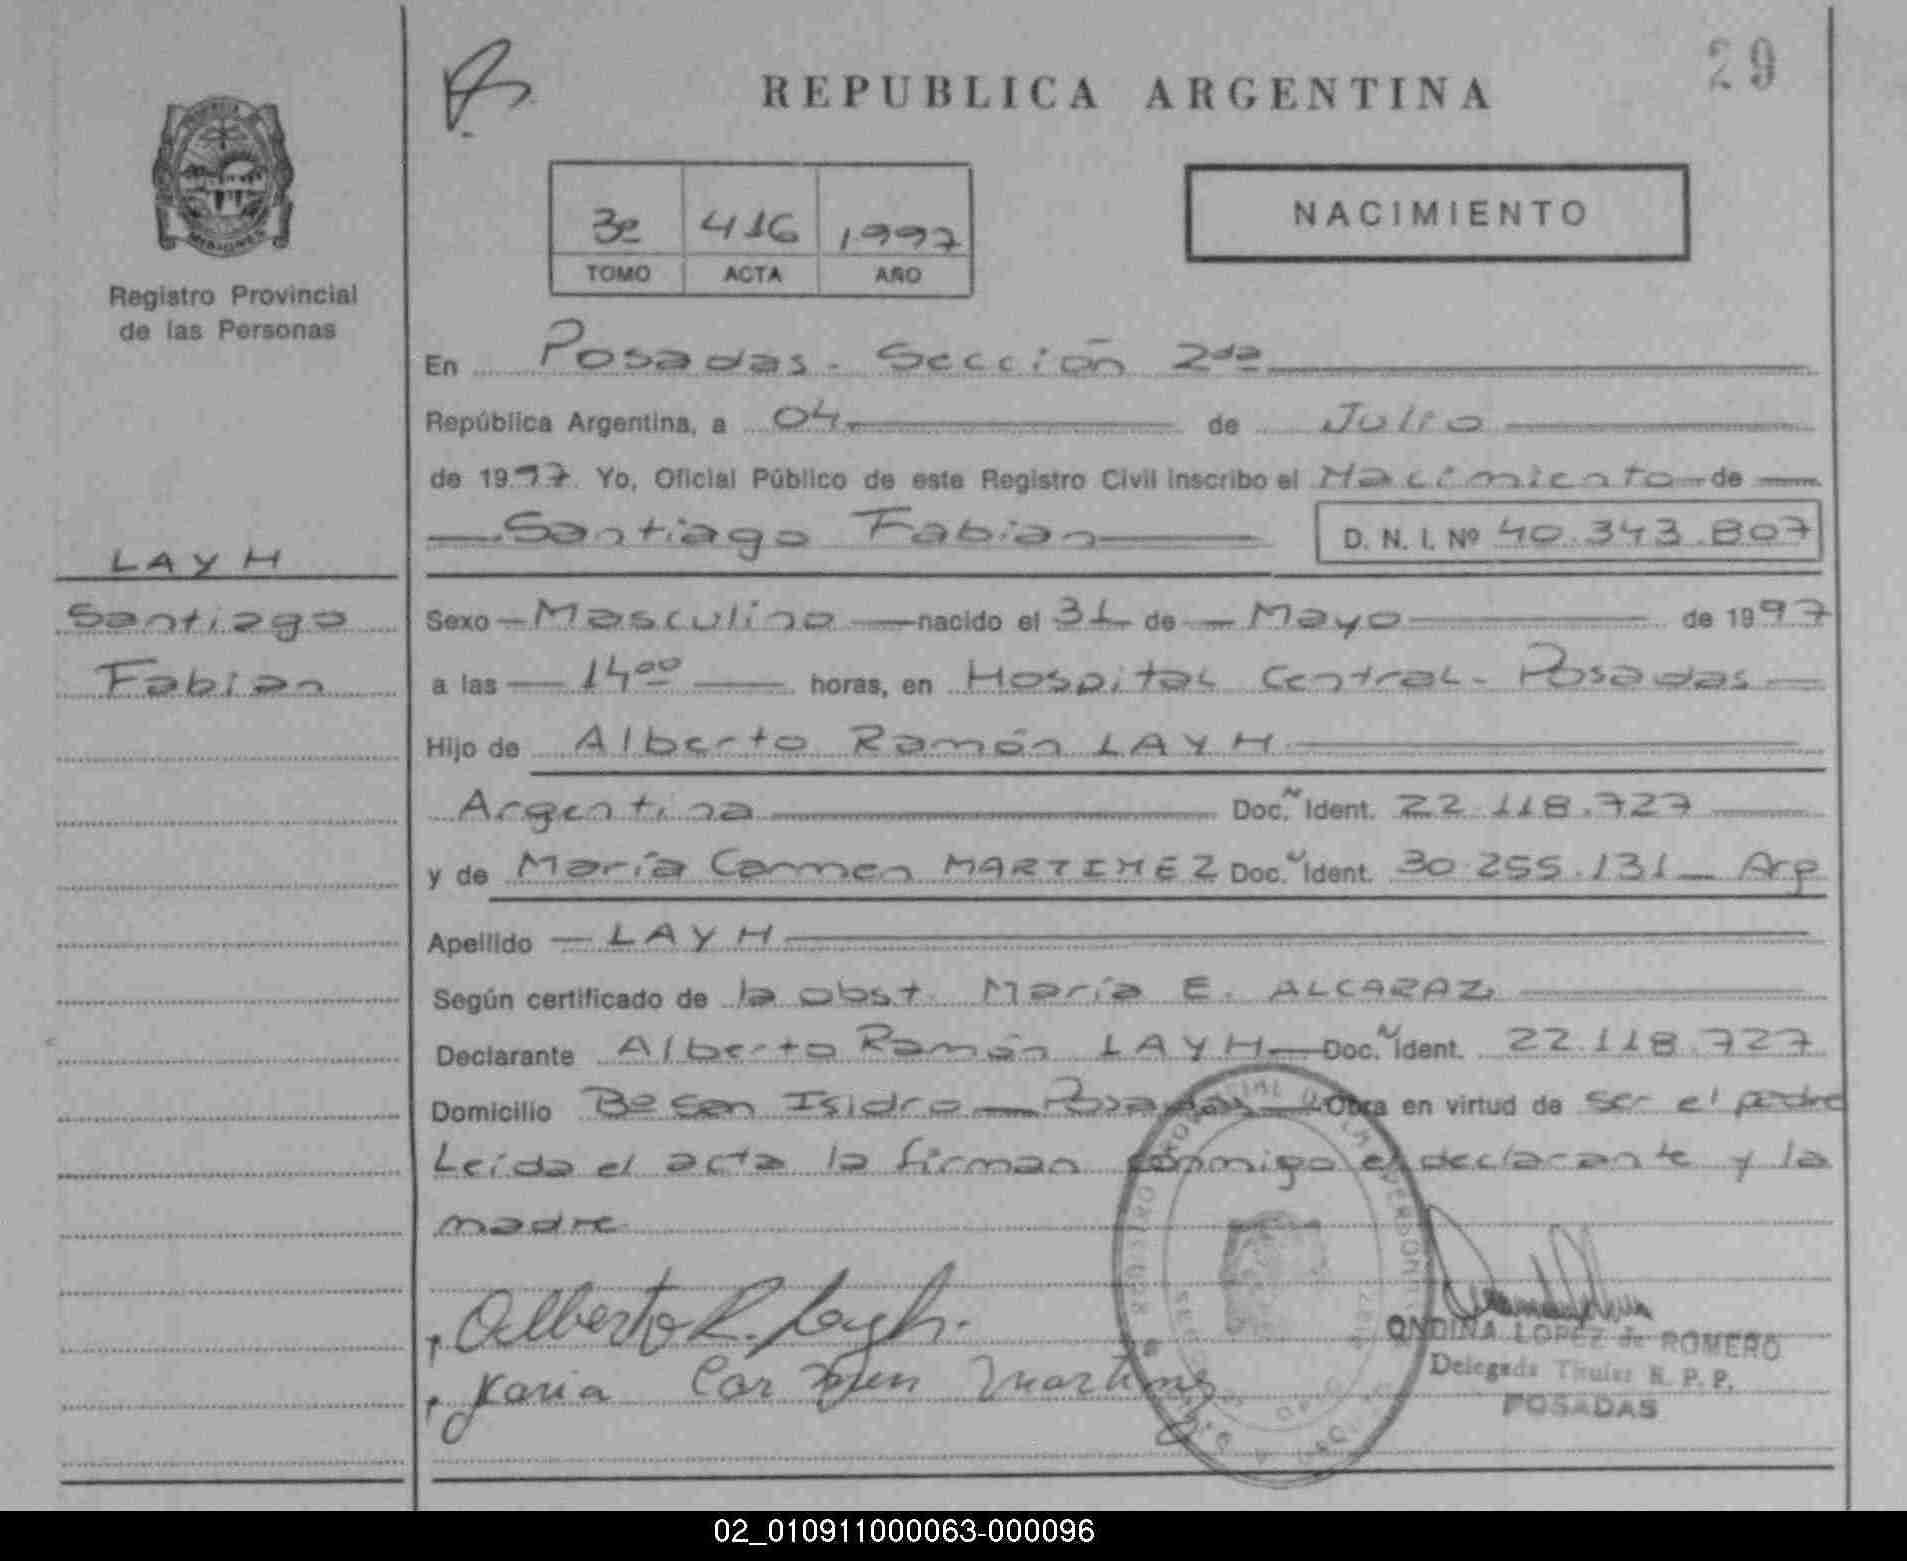 29
REPUBLICA ARGENTINA
NACIMIENTO
3º 416 1997
TOMO ACTA AÑO
MISIONES
Registro Provincial
de las Personas
LAYH
Santiago
Fabian
En Posadas - Sección 2da
República Argentina, a 04 de Julio
de 1997. Yo, Oficial Público de este Registro Civil inscribo el Nacimiento de
Santiago Fabian D. N. I. Nº 40.343.807
Sexo Masculino nacido el 31 de Mayo de 1997
a las 14⁰⁰ horas, en Hospital Central - Posadas
Hijo de Alberto Ramón LAYH
Argentina Doc. Ident. 22.118.727
y de María Carmen MARTINEZ Doc. Ident. 30.255.131 - Arg
Apellido LAYH
Según certificado de la obst. María E. ALCARAZ
Declarante Alberto Ramón LAYH Doc. Ident. 22.118.727
Domicilio Bº San Isidro - Posadas Obra en virtud de ser el padre
Leída el acta la firman conmigo el declarante y la
madre
Alberto R. Layh.
Maria Carmen Martinez
ONDINA LOPEZ de ROMERO
Delegada Titular R. P. P.
POSADAS
02_010911000063-000096